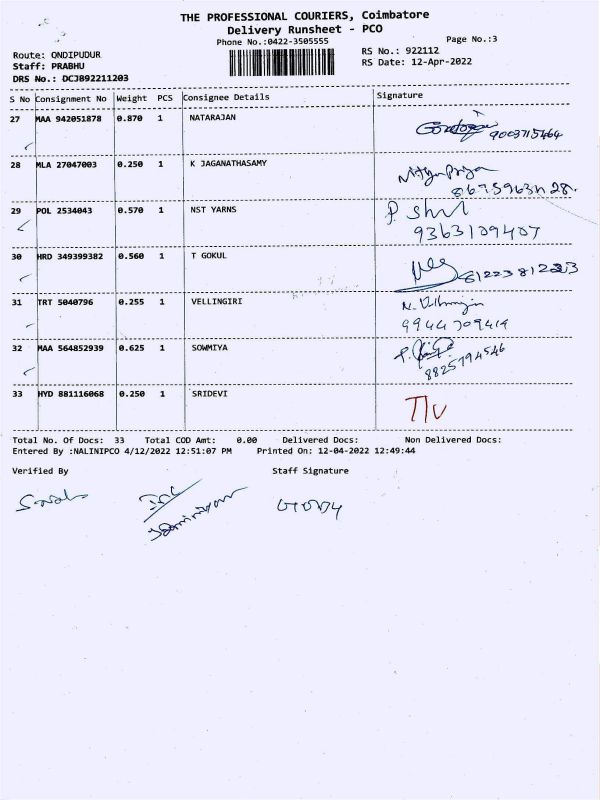 THE PROFESSIONAL COURIERS, Coimbatore
Delivery Runsheet - PCO
Phone No.:0422-3505555
Page No.:3
Route: ONDIPUDUR
RS No.: 922112
Staff: PRABHU
RS Date: 12-Apr-2022
DRS No.: DCJ892211203
S No Consignment No Weight PCS Consignee Details Signature
27 MAA 942051878 0.870 1 NATARAJAN
9003715464
28 MLA 27047003 0.250 1 K JAGANATHASAMY
Nithyapriya
29 POL 2534043 0.570 1 NST YARNS
P. Shul
9363109407
30 HRD 349399382 0.560 1 T GOKUL
31 TRT 5040796 0.255 1 VELLINGIRI
9944709419
32 MAA 564852939 0.625 1 SOWMIYA
8825794546
33 HYD 881116068 0.250 1 SRIDEVI
Total No. Of Docs: 33 Total COD Amt: 0.00 Delivered Docs: Non Delivered Docs:
Entered By :NALINIPCO 4/12/2022 12:51:07 PM Printed On: 12-04-2022 12:49:44
Verified By Staff Signature